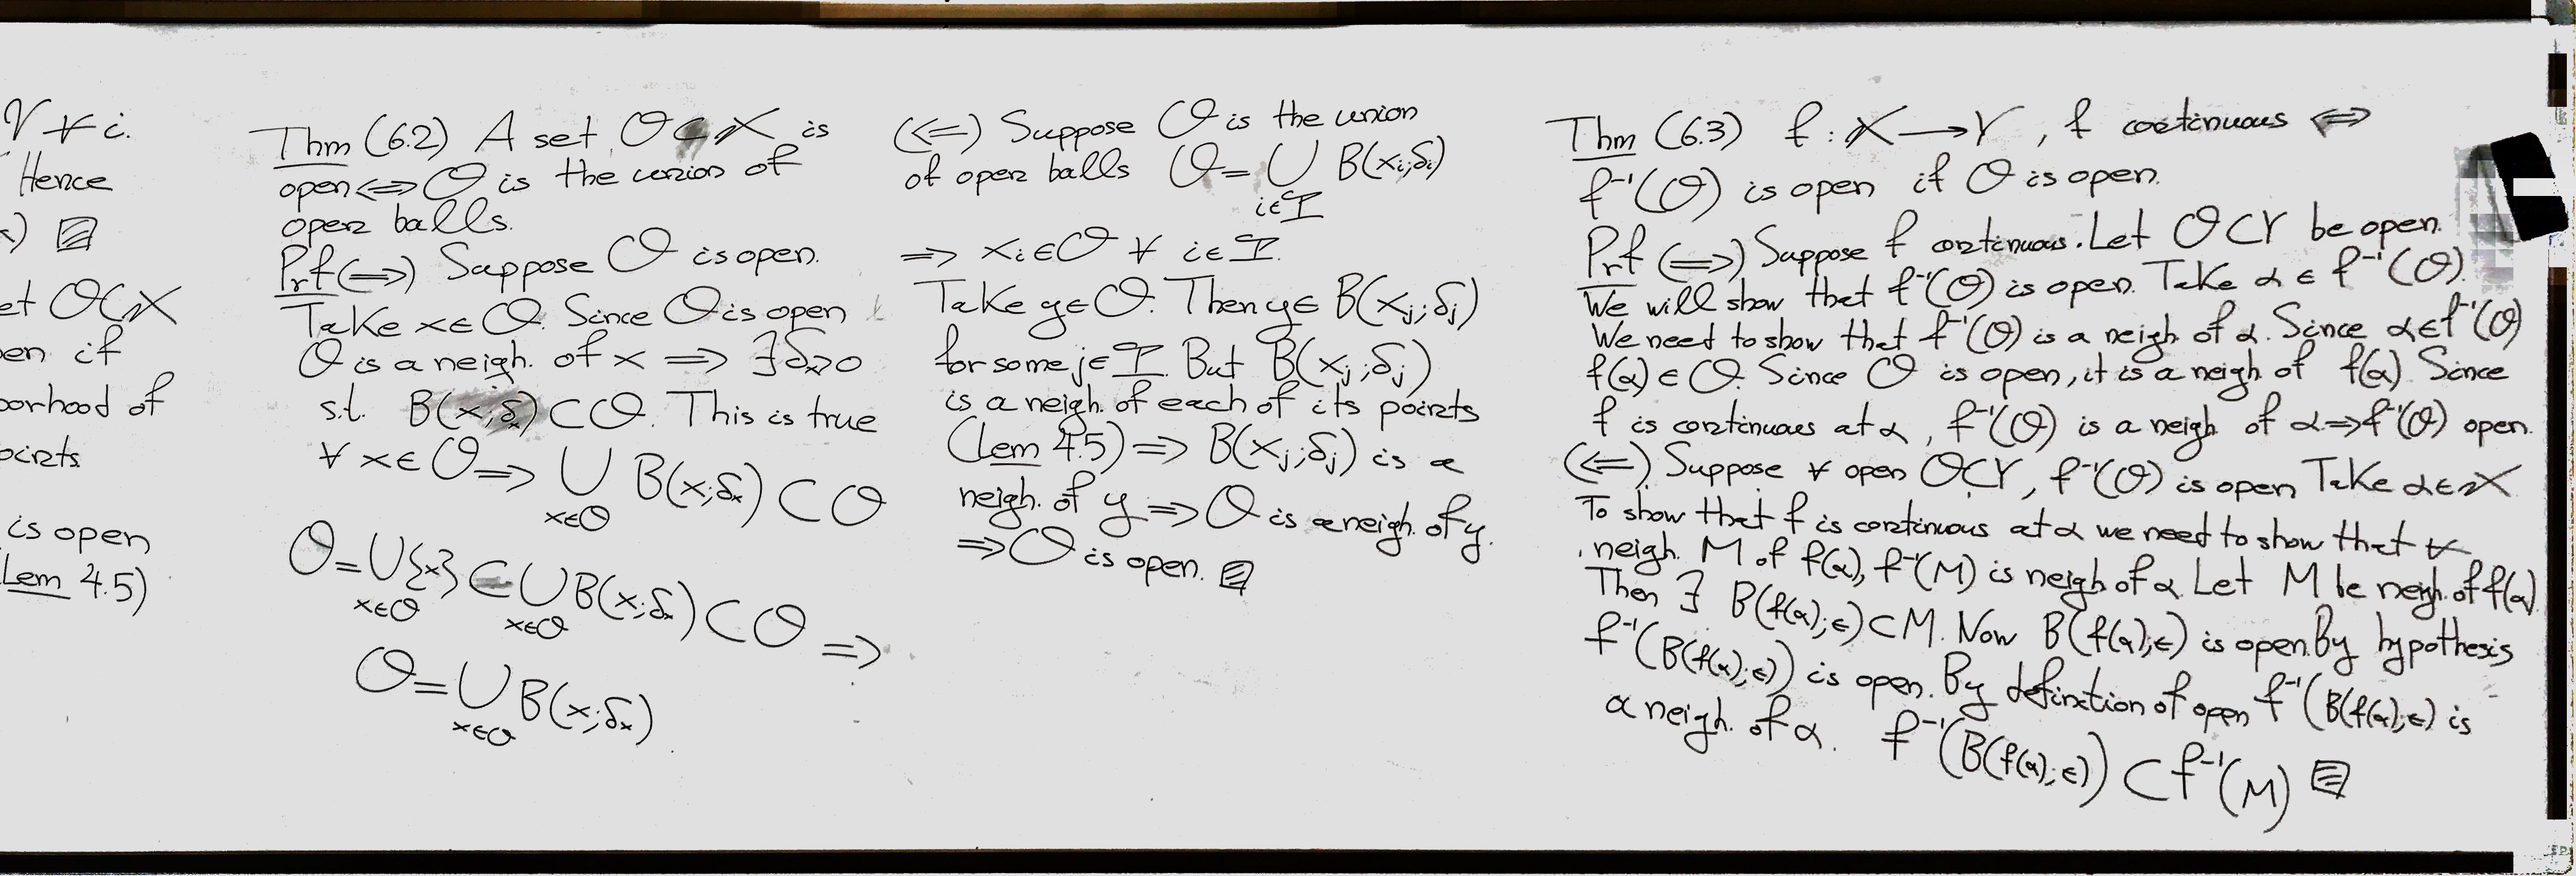 V ∀ i.
Hence
) ▨
et O⊂X
en if
borhood of
points
is open
Lem 4.5)
Thm (6.2) A set O⊂X is
open ⟺ O is the union of
open balls.
Prf (⟹) Suppose O is open.
Take x∈O. Since O is open
O is a neigh. of x ⟹ ∃ δₓ>0
s.t. B(x;δₓ)⊂O. This is true
∀ x∈O ⟹ ∪ B(x;δₓ) ⊂ O
x∈O
O=∪{x} ⊂ ∪B(x;δₓ) ⊂ O ⟹
x∈O x∈O
O=∪B(x;δₓ)
x∈O
(⟸) Suppose O is the union
of open balls O=∪ B(xᵢ;δᵢ)
i∈I
⟹ xᵢ∈O ∀ i∈I.
Take y∈O. Then y∈ B(xⱼ;δⱼ)
for some j∈I. But B(xⱼ;δⱼ)
is a neigh. of each of its points
(Lem 4.5) ⟹ B(xⱼ;δⱼ) is a
neigh. of y ⟹ O is a neigh. of y.
⟹ O is open. ▨
Thm (6.3) f: X→Y, f continuous ⟺
f⁻¹(O) is open if O is open.
Prf (⟹) Suppose f continuous. Let O⊂Y be open.
We will show that f⁻¹(O) is open. Take α ∈ f⁻¹(O).
We need to show that f⁻¹(O) is a neigh of α. Since α∈f⁻¹(O)
f(α)∈O. Since O is open, it is a neigh of f(α). Since
f is continuous at α, f⁻¹(O) is a neigh of α ⟹ f⁻¹(O) open.
(⟸) Suppose ∀ open O⊂Y, f⁻¹(O) is open Take α∈X
To show that f is continuous at α we need to show that ∀
neigh. M of f(α), f⁻¹(M) is neigh of α. Let M be neigh. of f(α)
Then ∃ B(f(α);ϵ)⊂M. Now B(f(α);ϵ) is open. By hypothesis
f⁻¹(B(f(α);ϵ)) is open. By definition of open f⁻¹(B(f(α);ϵ) is
a neigh. of α. f⁻¹(B(f(α);ϵ)) ⊂ f⁻¹(M) ▨